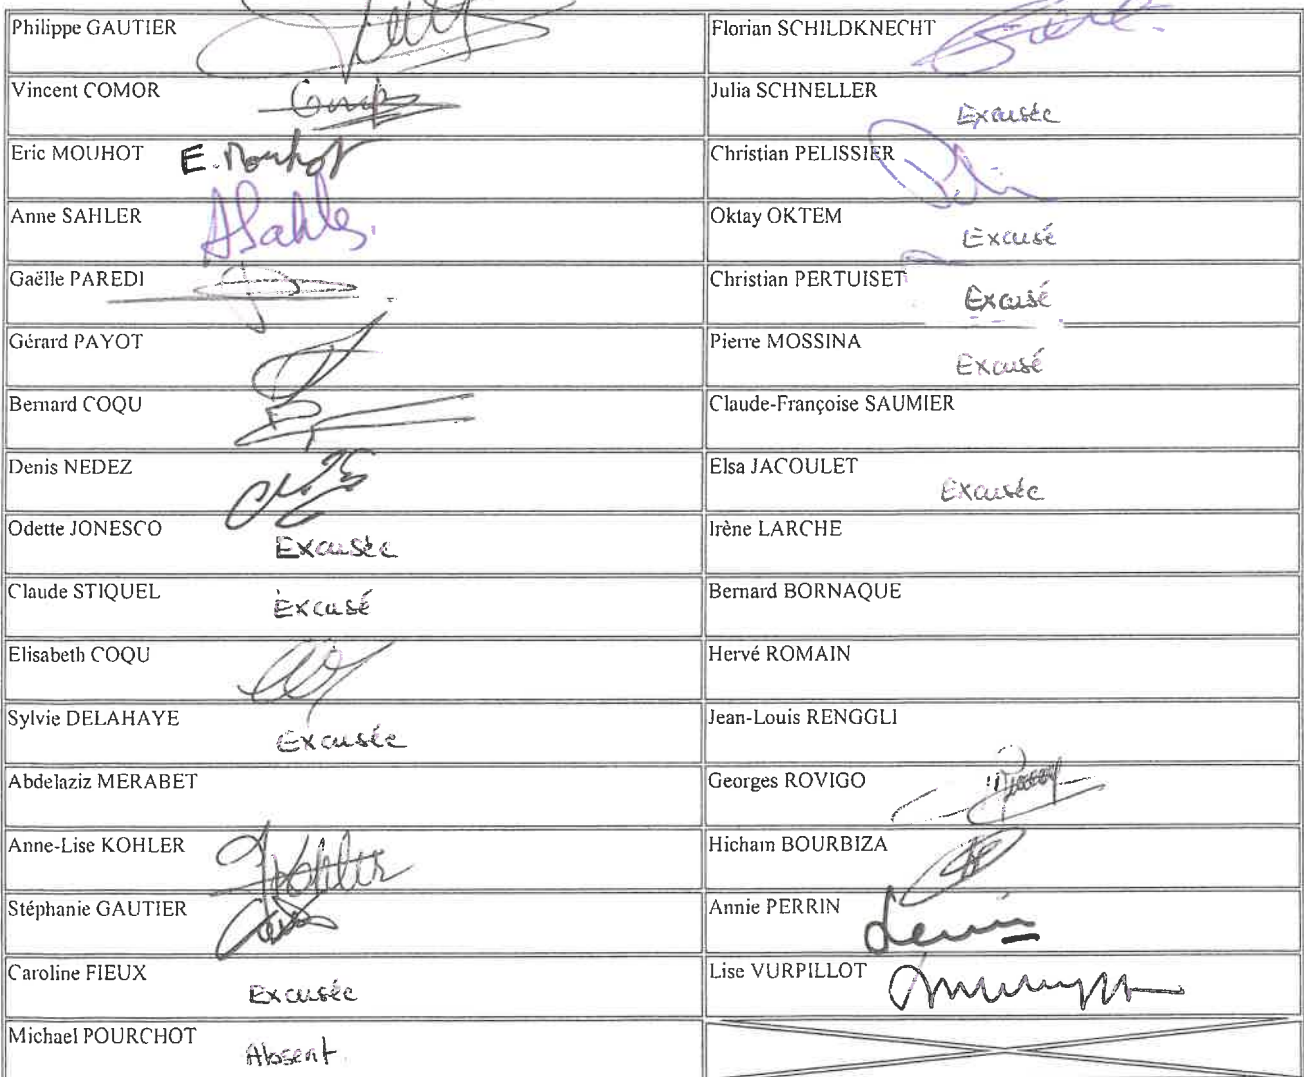 Philippe GAUTIER
Florian SCHILDKNECHT
Vincent COMOR
Julia SCHNELLER
Excusée
Eric MOUHOT
E. Mouhot
Christian PELISSIER
Anne SAHLER
ASahler
Oktay OKTEM
Excusé
Gaëlle PAREDI
Christian PERTUISET
Excusé
Gérard PAYOT
Pierre MOSSINA
Excusé
Bernard COQU
Claude-Françoise SAUMIER
Denis NEDEZ
Elsa JACOULET
Excusée
Odette JONESCO
Excusée
Irène LARCHE
Claude STIQUEL
Excusé
Bernard BORNAQUE
Elisabeth COQU
Hervé ROMAIN
Sylvie DELAHAYE
Excusée
Jean-Louis RENGGLI
Abdelaziz MERABET
Georges ROVIGO
Anne-Lise KOHLER
Kohler
Hicham BOURBIZA
Stéphanie GAUTIER
Annie PERRIN
Caroline FIEUX
Excusée
Lise VURPILLOT
Michael POURCHOT
Absent